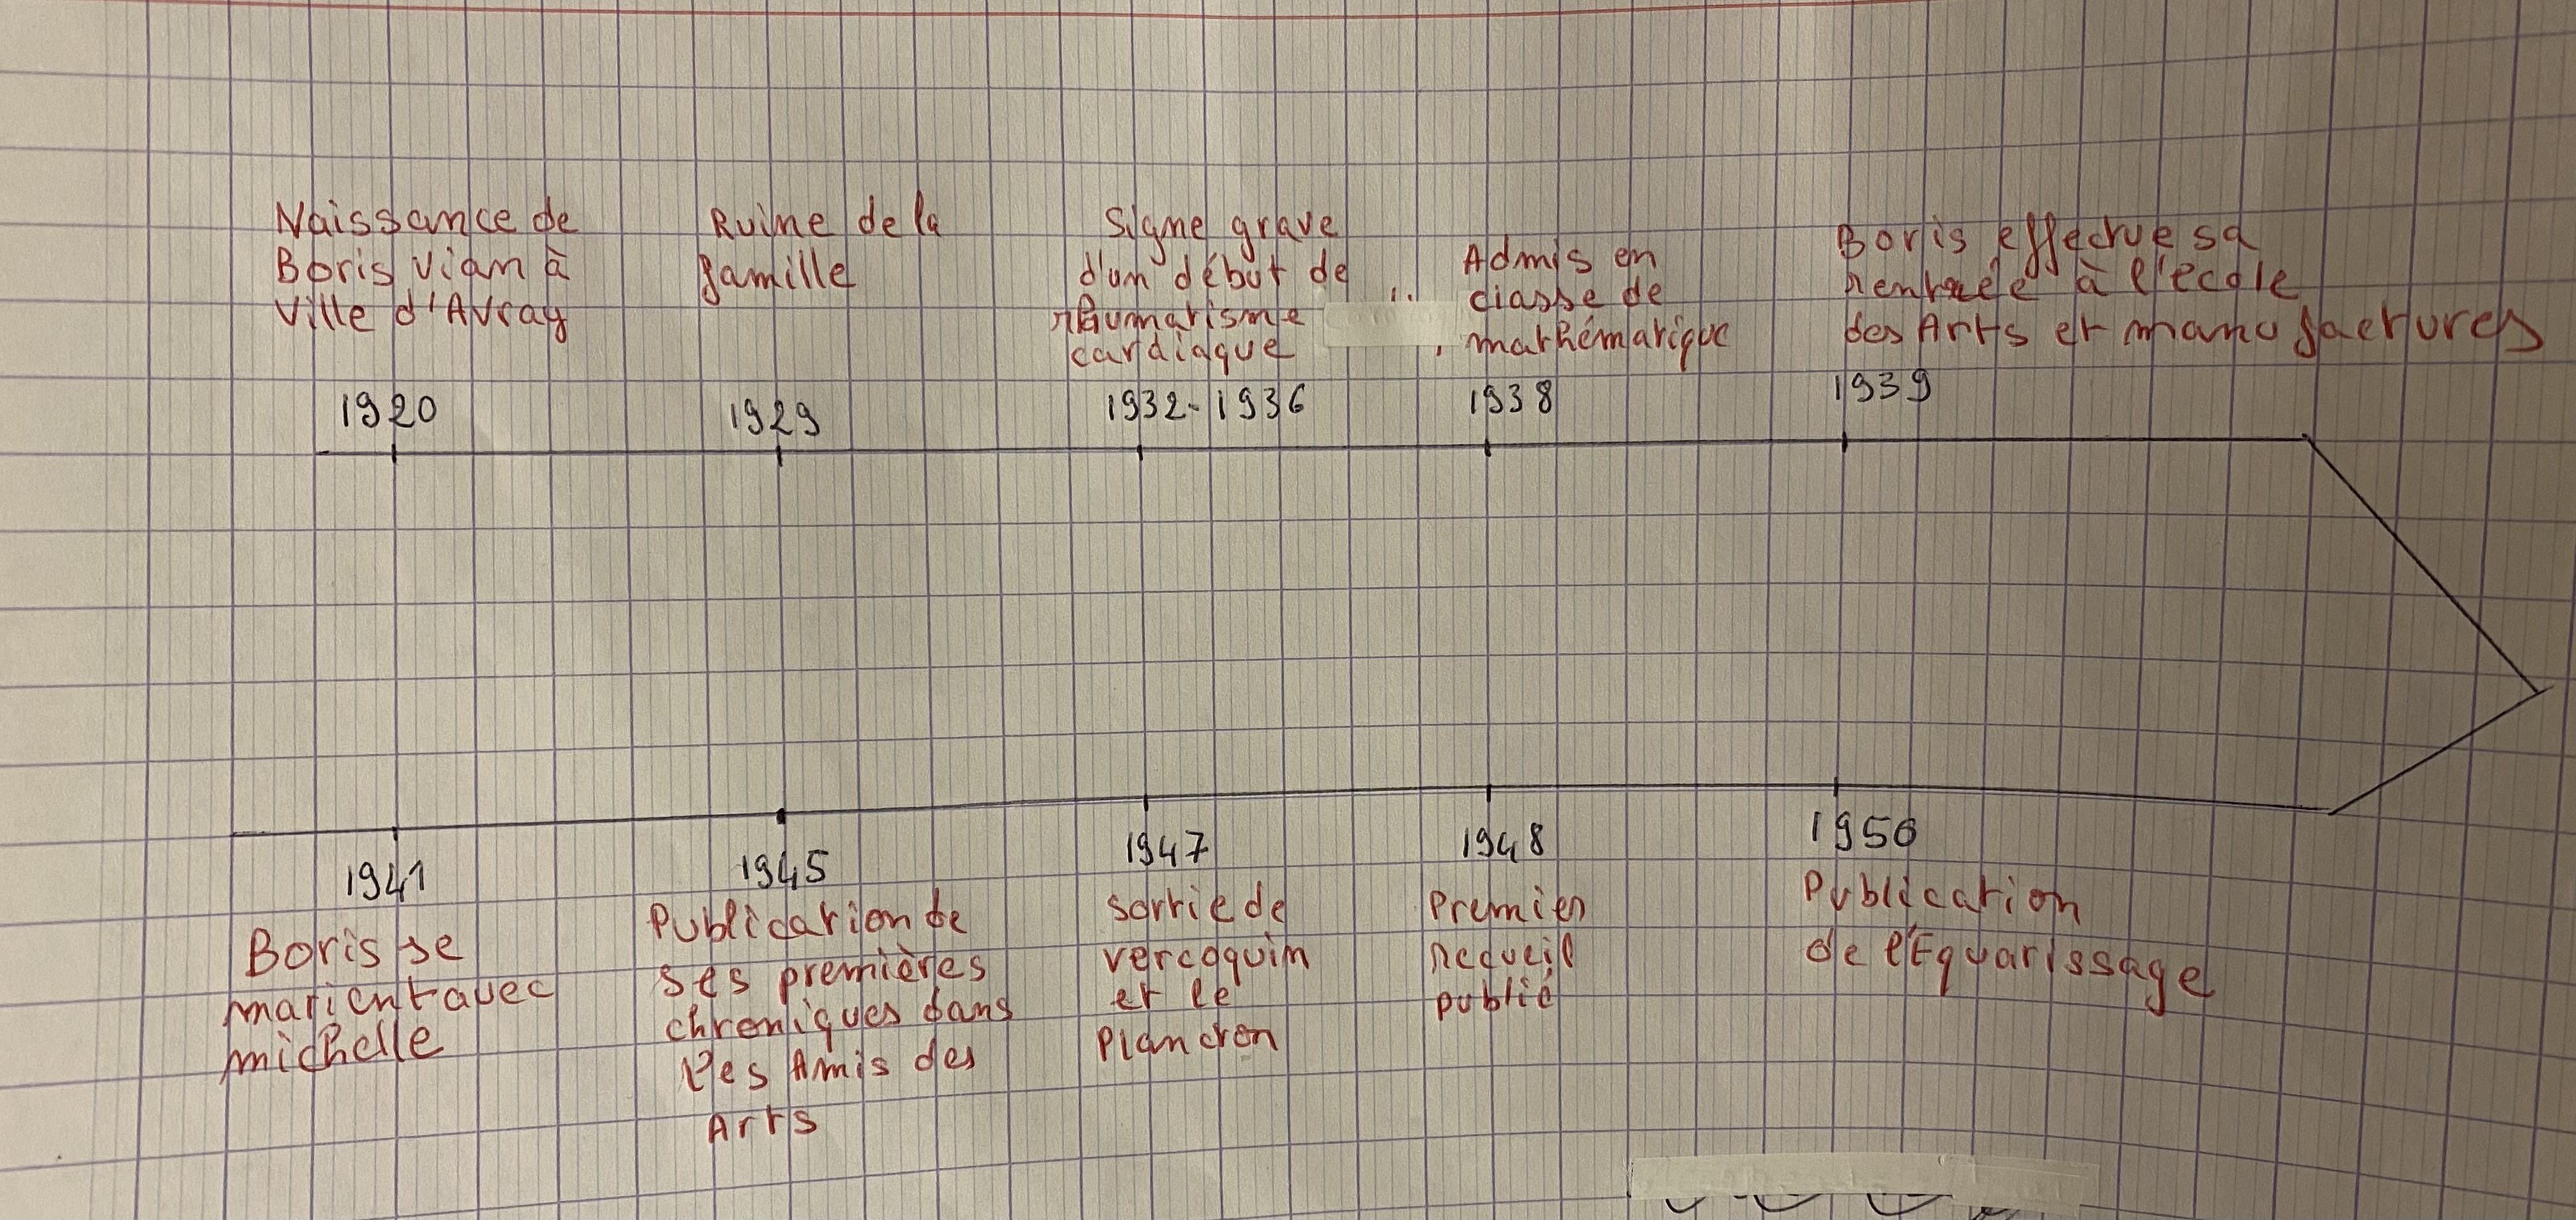 Naissance de
Boris Vian à
Ville d'Avray
1920
Ruine de la
famille
1929
Signe grave
d'un début de
rhumatisme
cardiaque
1932-1936
Admis en
classe de
mathématique
1938
Boris effectue sa
rentrée à l'école
des Arts et manufactures
1939
1941
Boris se
marient avec
michelle
1945
Publication de
ses premières
chroniques dans
Les Amis des
Arts
1947
sortie de
vercoquin
et le
Plancton
1948
Premier
recueil
publié
1950
Publication
de l'Equarissage